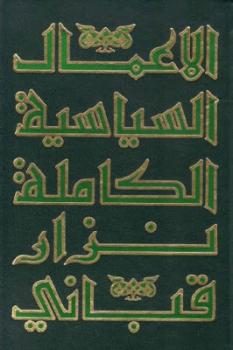 الاعمال
السياسية
الكاملة
نزار
قباني